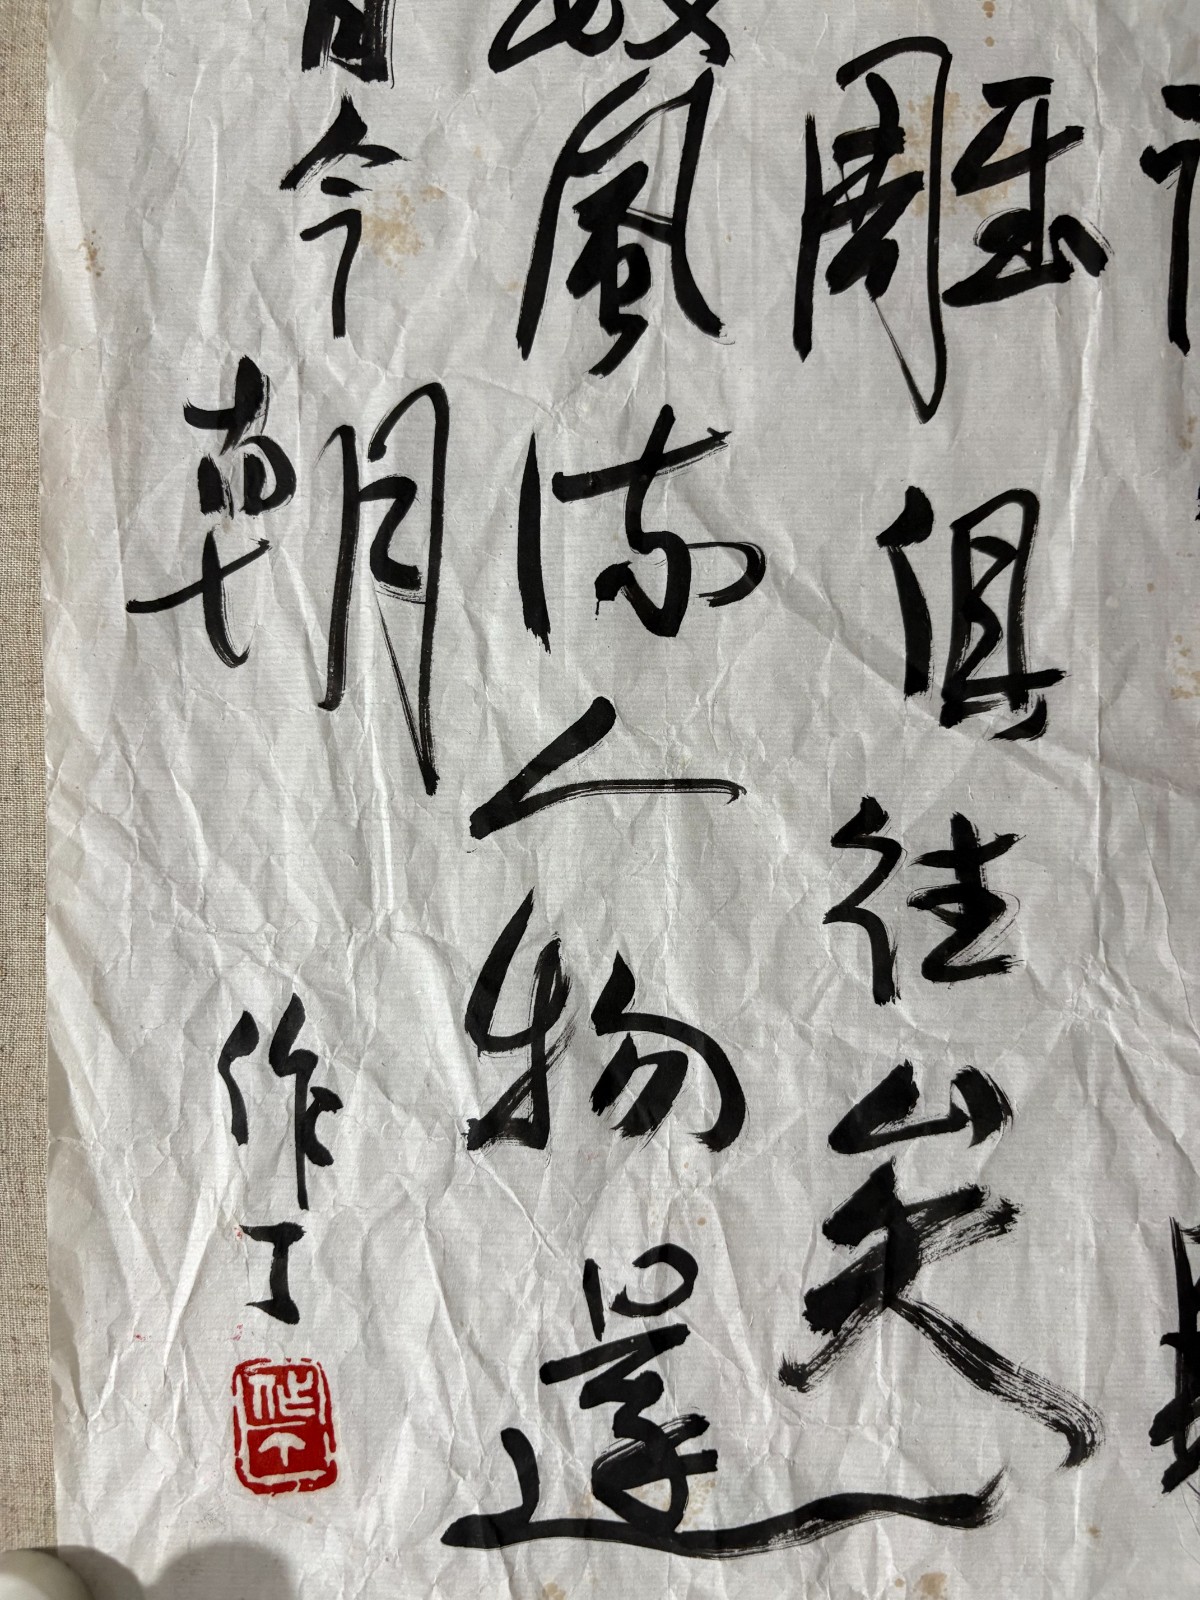 雕俱往矣
風流人物還
今朝
作丁
作丁